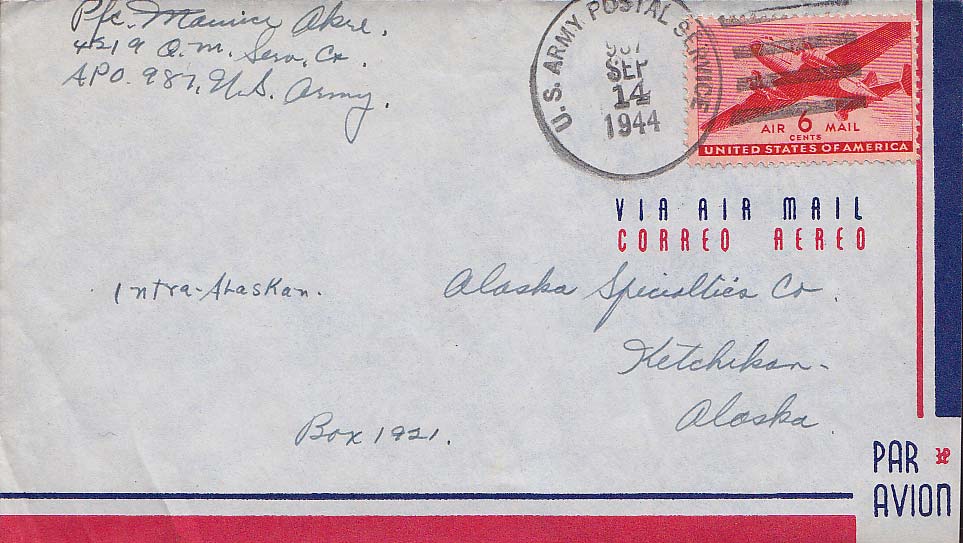 Pfc. Maurice Akre.
4219 Q.M. Serv. Co.
APO. 987, U.S. Army.
U.S. ARMY POSTAL SERVICE
SEP
14
1944
AIR 6 MAIL
CENTS
UNITED STATES OF AMERICA
VIA AIR MAIL
CORREO AEREO
Intra-Alaskan.
Alaska Specialties Co.
Ketchikan-
Alaska
Box 1921.
PAR
AVION